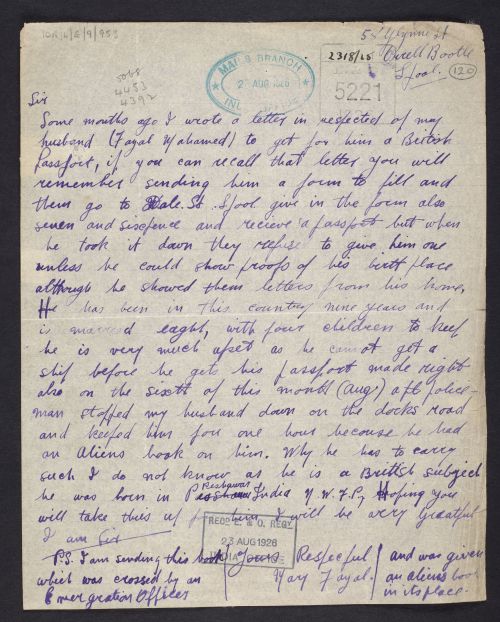 IOR/L/E/9/953
5068
4453
4392
MAILS BRANCH
2 AUG 1926
2318/25
5221
120
Orrell Bootle
Lpool.
Sir
Some months ago I wrote a letter in respected of my
husband (Fazal Mahamed) to get for him a British
Passport, if you can recall that letter you will
remember sending him a form to fill and
then go to Dale. St. Lpool give in the form also
seven and sixpence and recieve a passport but when
he took it down they refuse to give him one
unless he could show proofs of his birth place
although he showed them letters from his home.
He has been in this country nine years and
is married eaght, with four children to keep
he is very much upset as he cannot get a
ship before he gets his passport made right
also on the sixth of this month (Aug) a ft police-
man stopped my husband down on the docks road
and keeped him for one hour because he had
an Aliens book on him. Why he has to carry
such I do not know as he is a British subject
he was born in Peshawar India N.W.F.P, Hoping you
will take this up for him I will be very greatful
I am Sir
RECD. E. & O. REGY.
23 AUG 1926
INDIA OFFICE
Yours Respecful
Mary Fazal.
P.S. I am sending this book
which was crossed by an
Emergration Officer
and was given
an aliens book
in its place.